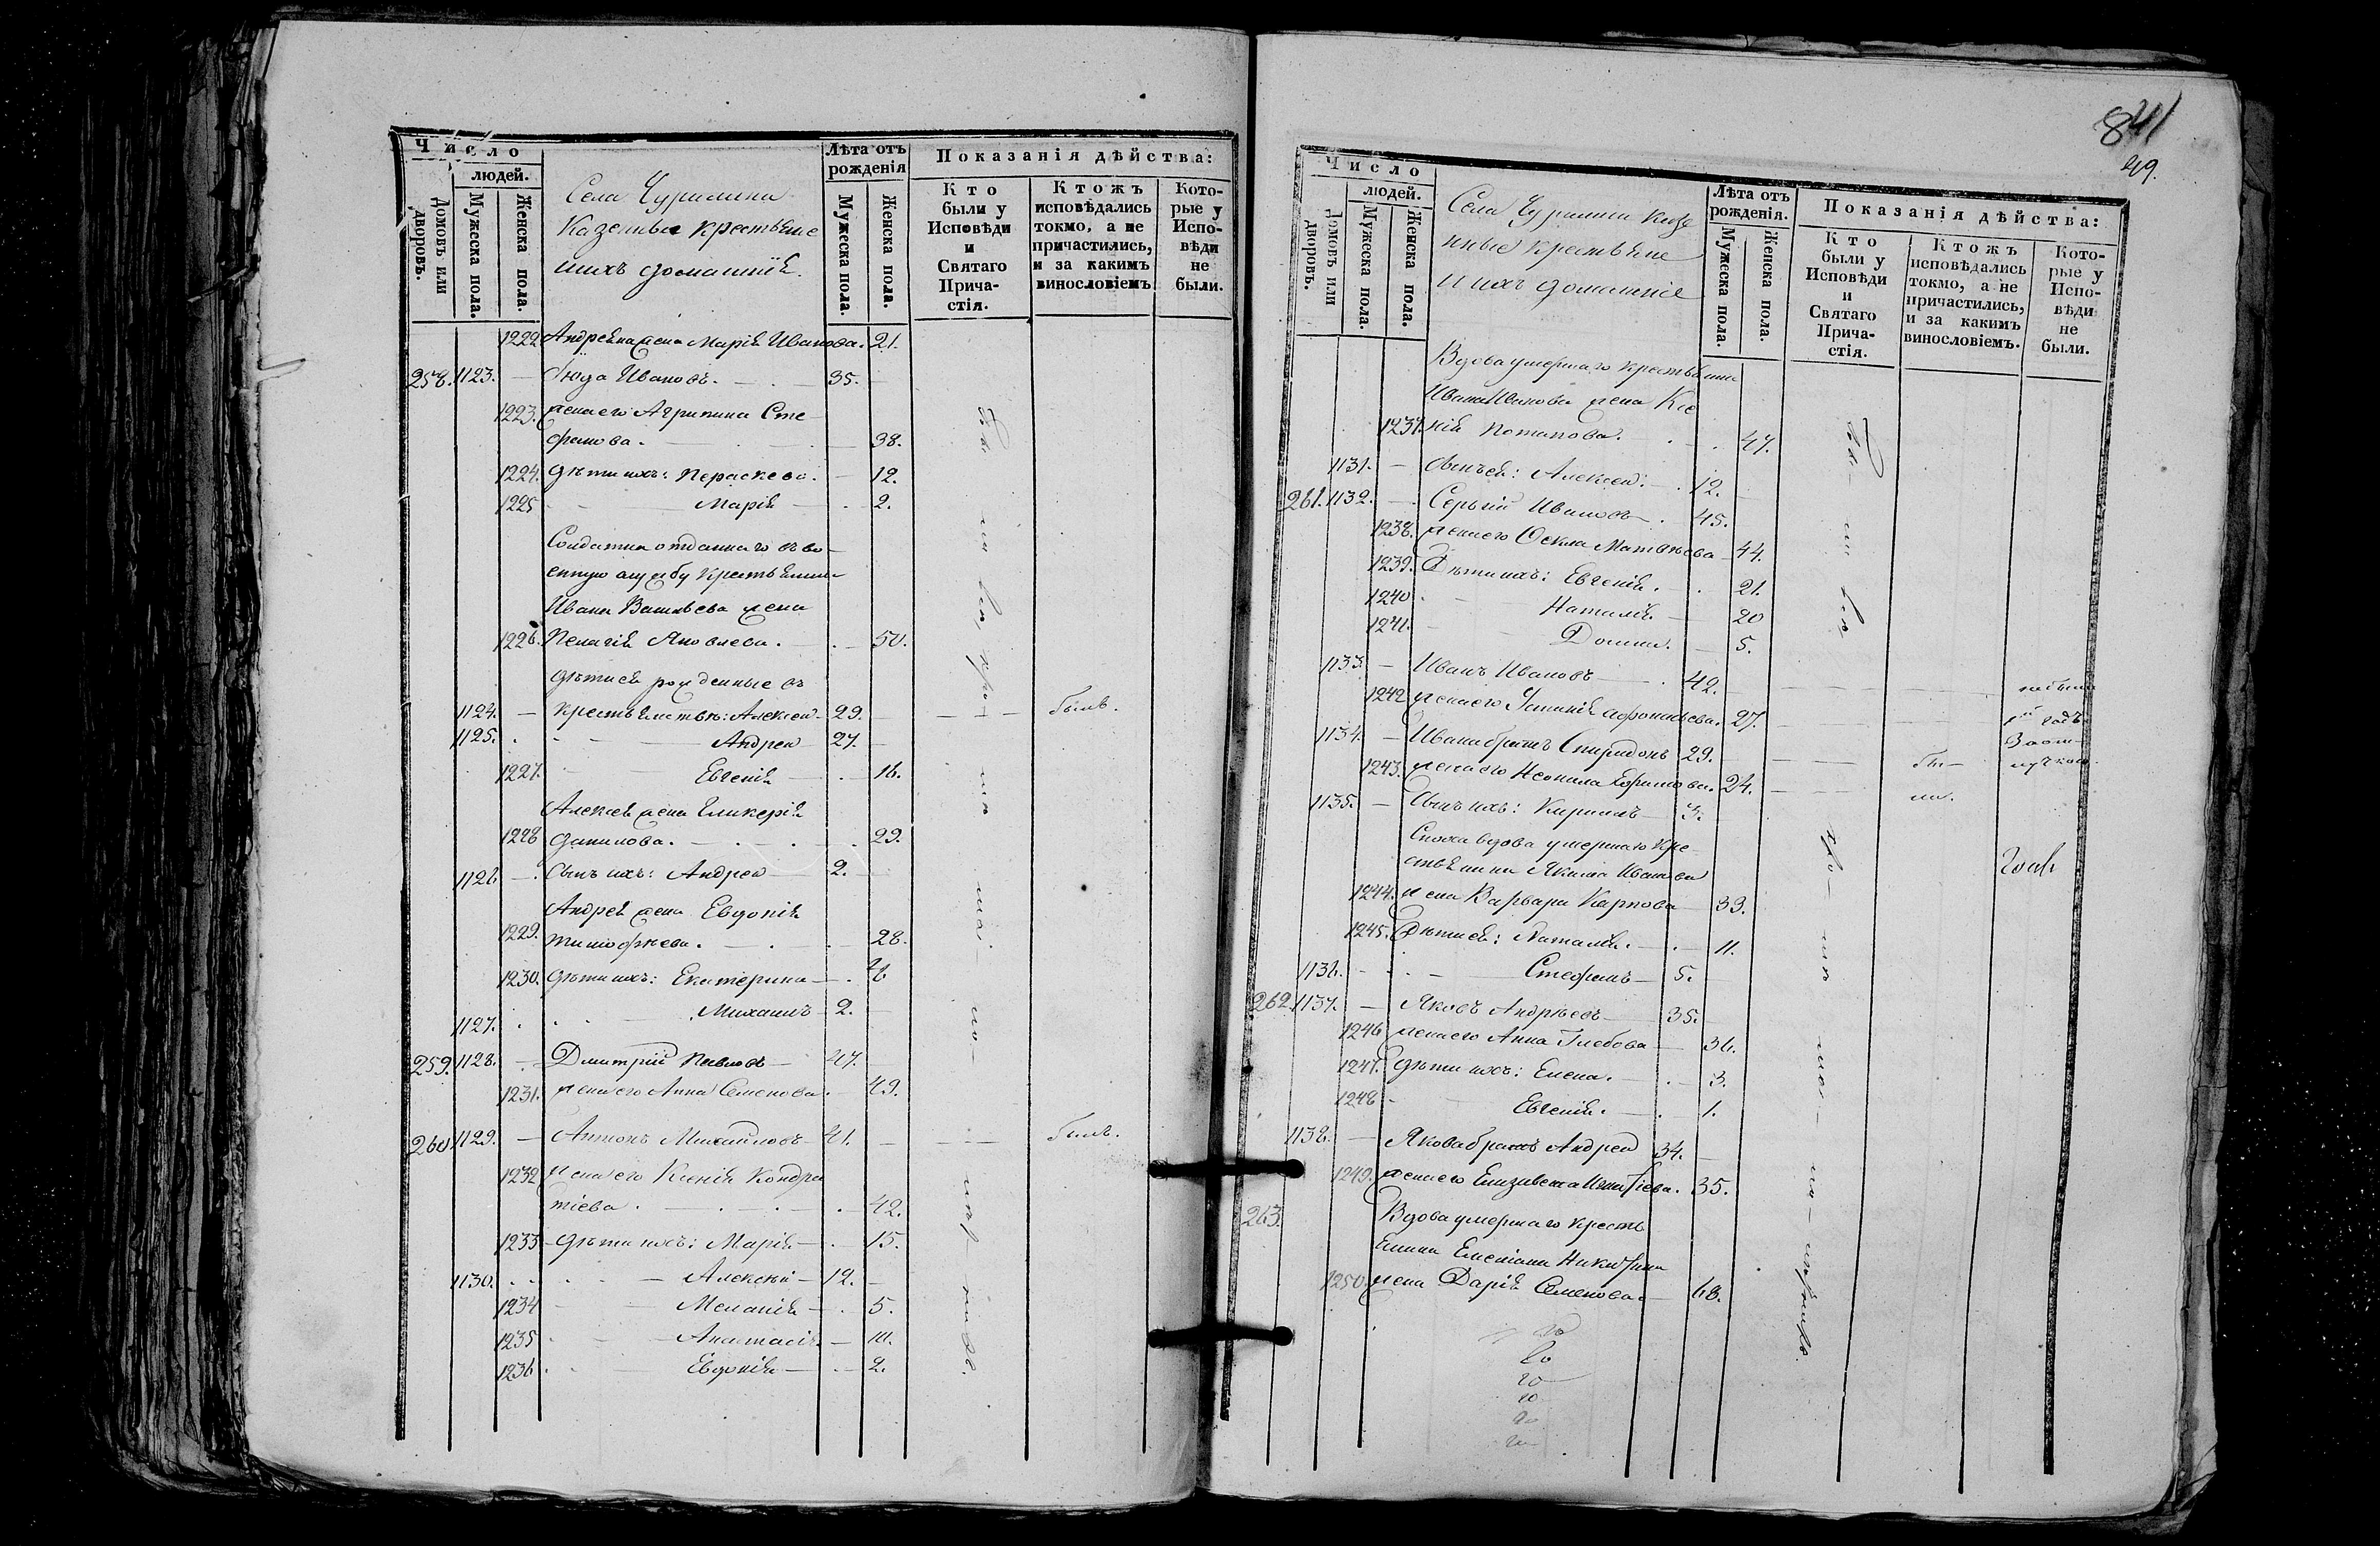 Число
людей.
Домовъ или дворовъ.
Мужеска пола.
Женска пола.
Села Чурилина
Казенные крестьяне
и ихъ домашнія.
Лѣта отъ рожденія
Мужеска пола.
Женска пола.
Показанія дѣйства:
Кто были у Исповѣди и Святаго Прича-стія.
Ктожъ исповѣдались токмо, а не причастились, и за какимъ винословіемъ
Кото-рые у Испо-вѣди не были.
1222 Андреяна жена Марія Иванова. 21.
258. 1123. — Іюда Ивановъ. — 35.
1223. жена его Агрипина Сте
фанова. — 38.
1224. дѣти ихъ: Параскева. — 12.
1225 — Марія — 2.
Солдатка отданнаго въ во-
енную службу крестьянина
Ивана Васильева жена
1226. Пелагія Яковлева. — 50.
дѣти ея рожденные въ
1124. — крестьянствѣ: Алексей — 29. — былъ.
1125. — Андрей — 27.
1227. — Евгенія — 16.
Алексея жена Гликерія
1228 Данилова. — 29.
1126. — Сынъ ихъ: Андрей — 2.
Андрея жена Евдокія
1229. Тимофѣева. — 28.
1230. дѣти ихъ: Екатерина — 6
1127. — Михаилъ — 2.
259. 1128. — Дмитрій Павловъ — 47.
1231. жена его Анна Семенова. 49.
260 1129. — Антонъ Михайловъ — 41. — былъ.
1232 жена его Ксенія Кондра
тіева. — 42.
1233 — дѣти ихъ: Марія — 15.
1130. — Алексѣй — 12.
1234 — Меланія — 5.
1235 — Анастасія — 10.
1236 — Евдокія — 2.
841
49.
Число
людей.
Домовъ или дворовъ.
Мужеска пола.
Женска пола.
Села Чурилина казе
нные крестьяне
и ихъ домашніе
Лѣта отъ рожденія.
Мужеска пола.
Женска пола.
Показанія дѣйства:
Кто были у Исповѣди и Святаго Прича-стія.
Ктожъ исповѣдались токмо, а не причастились, и за какимъ винословіемъ.
Кото-рые у Испо-вѣди не были.
Вдова умершаго крестьянина
Ивана Иванова жена Ксе
1237. нія Потапова. — 47.
1131. — сынъ ея: Алексей. — 12.
261. 1132. — Сергій Ивановъ. 45.
1238. жена его Фекла Матвѣева — 44.
1239. Дѣти ихъ: Евгенія. — 21.
1240 — Наталія. — 20
1241. — Домна. — 5.
1133. — Иванъ Ивановъ — 42.
1242 жена его Устинія Афонасьева. 27.
1134. — Ивана братъ Спиридонъ 29. — бы-
1243. жена его Неонила Ефимова. 24. — ли.
1135. — Сынъ ихъ: Кирилъ — 3.
Сноха вдова умершаго кре
стьянина Якима Иванова
1244. жена Варвара Карпова — 39.
1245. Дѣти ея: Наталія. — 11.
1136. — Стефанъ — 5.
262. 1137. — Яковъ Андрѣевъ — 35.
1246 жена его Анна Глебова — 36.
1247. дѣти ихъ: Елена. — 3.
1248 — Евгенія. — 1.
1138. — Якова братъ Андрей 34.
1249. жена его Елизавета Игнатіева. 35.
263. Вдова умершаго кресть
янина Емельяна Никитина
1250 жена Дарія Семенова. — 68.
20
20
20
20
20